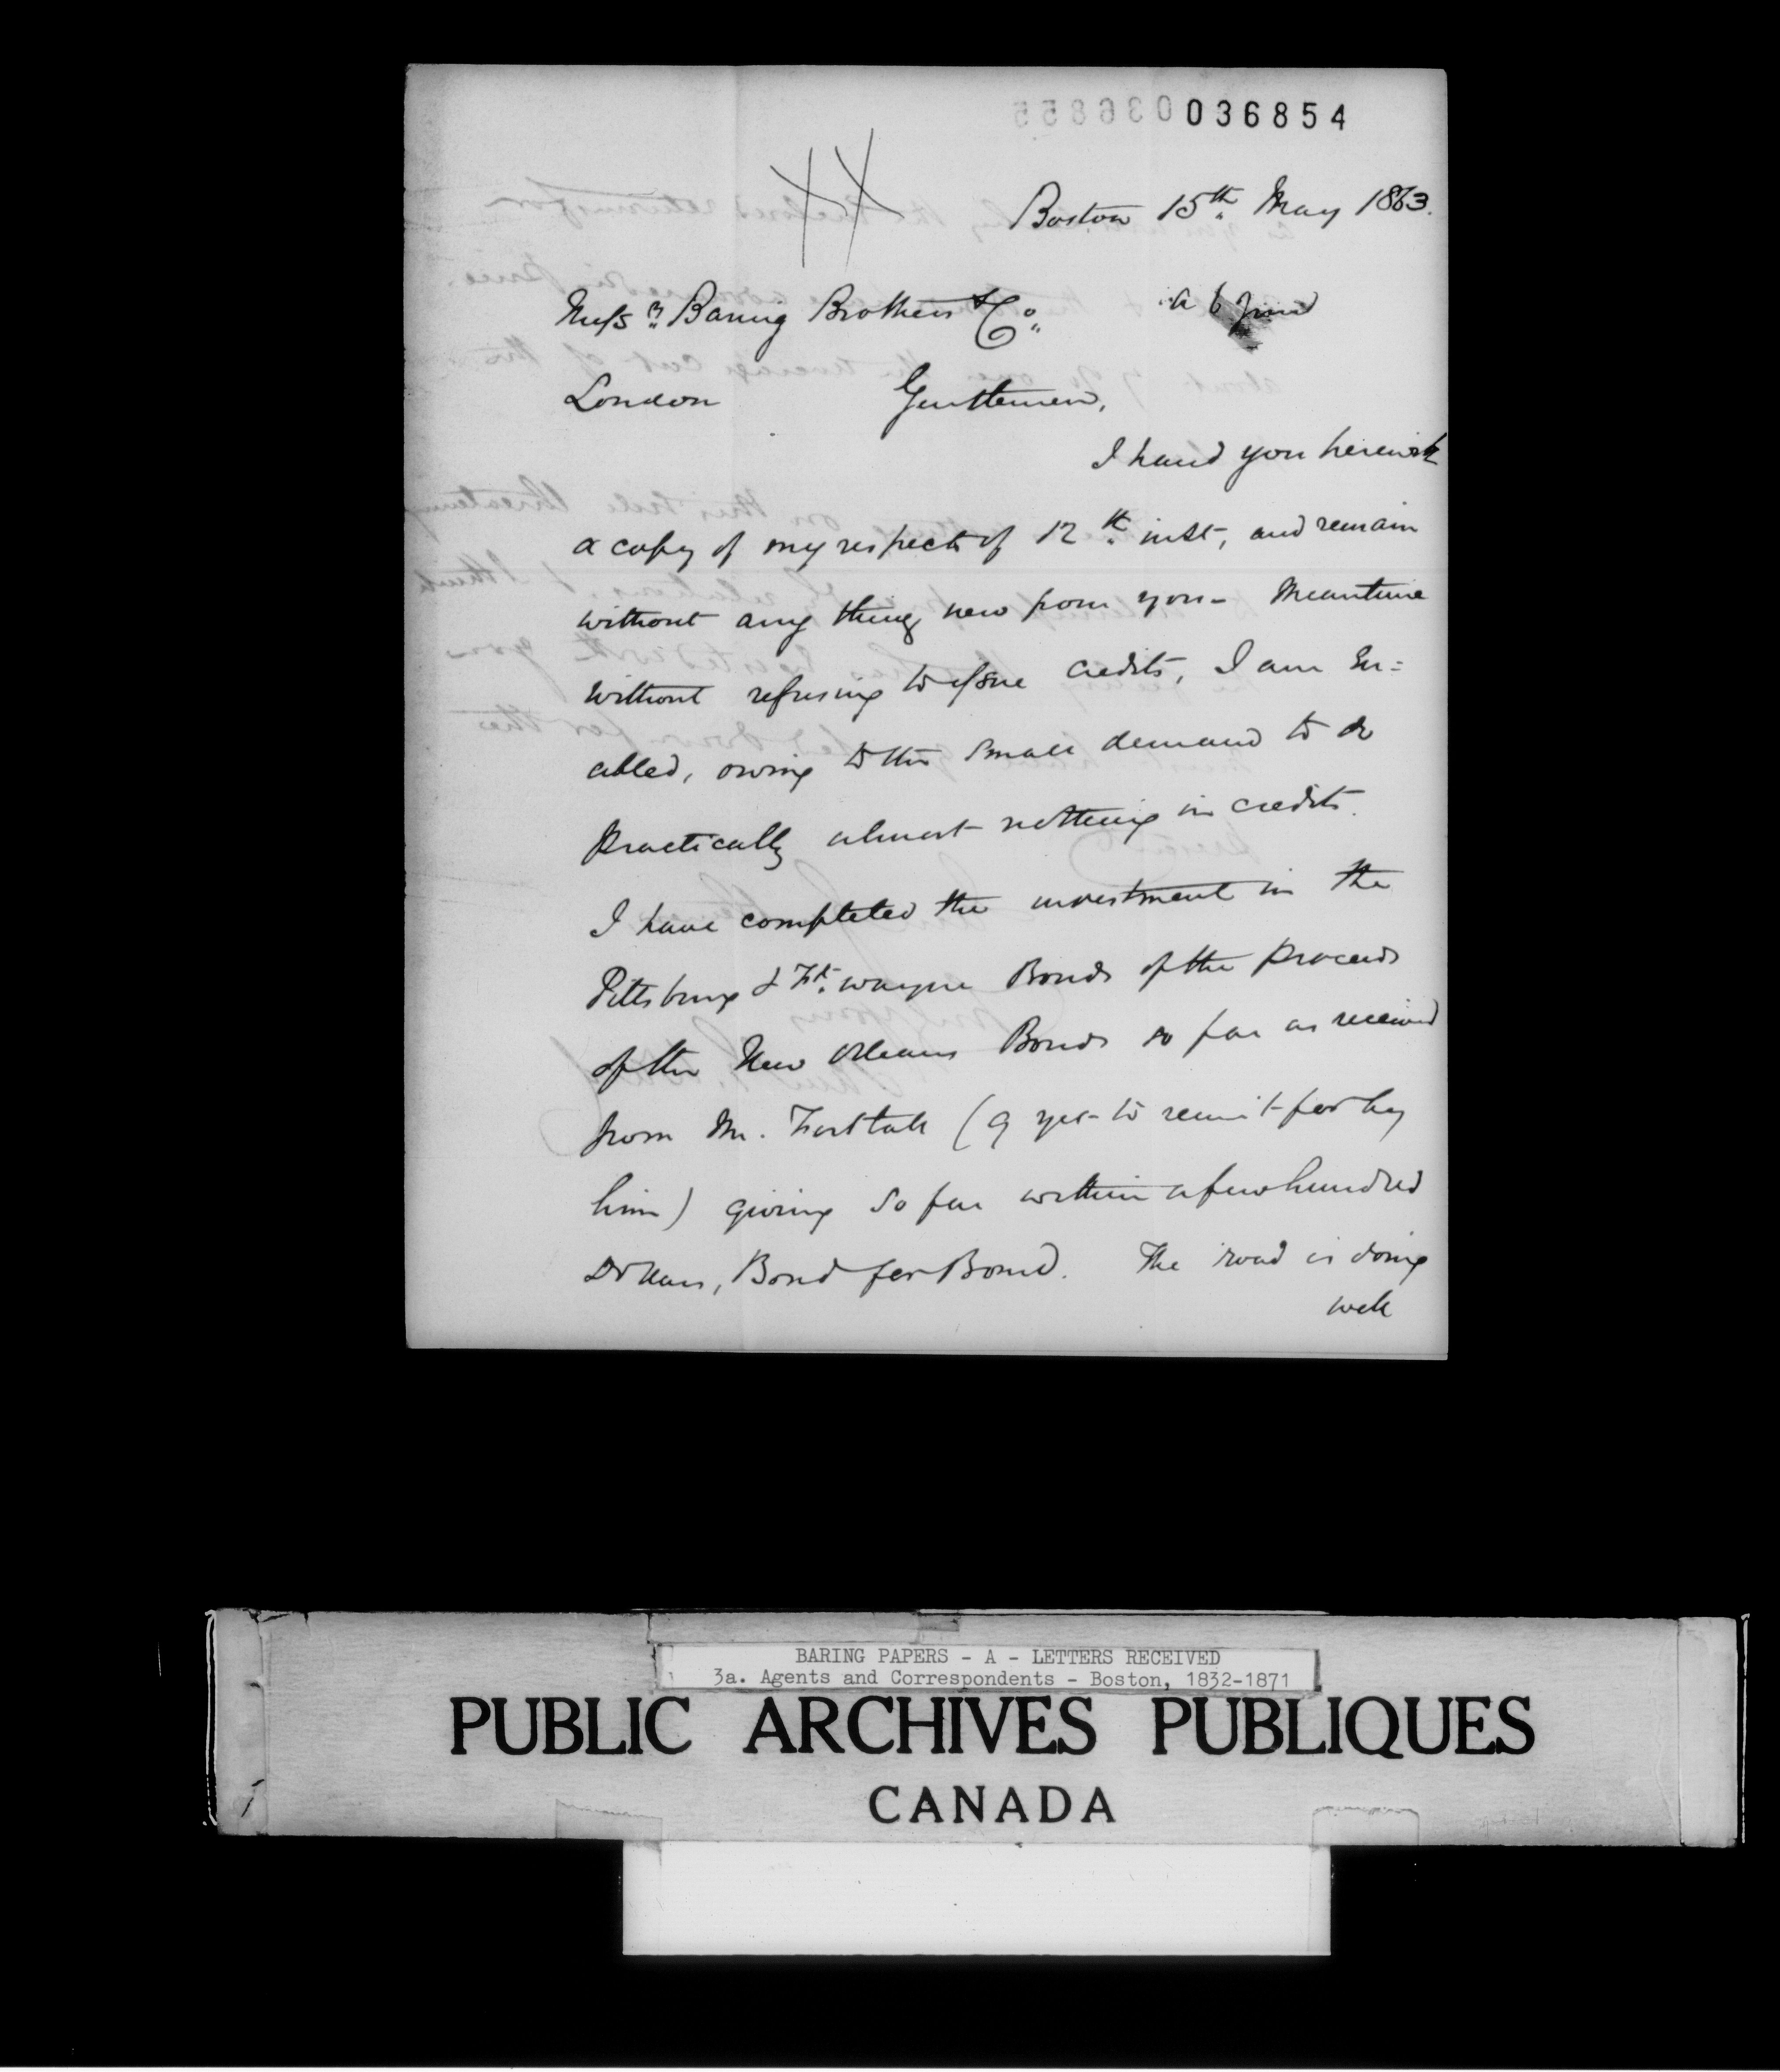 036854
Boston 15th May 1863.
Messrs Baring Brothers & Co.
a 6 June
London Gentlemen,
I hand you herewith
a copy of my respects of 12th inst, and remain
without any thing new from you - Meantime
without refusing to issue credits, I am En=
abled, owing to the small demand to do
practically almost nothing in credits.
I have completed the investment in the
Pittsburg & Ft. Wayne Bonds of the proceeds
of the New Orleans Bonds so far as received
from Mr. Forstall (9 yet to remit for by
him) giving so far within a few hundred
Dollars, Bond for Bond. The road is doing
well
BARING PAPERS - A - LETTERS RECEIVED
3a. Agents and Correspondents - Boston, 1832-1871
PUBLIC ARCHIVES PUBLIQUES
CANADA